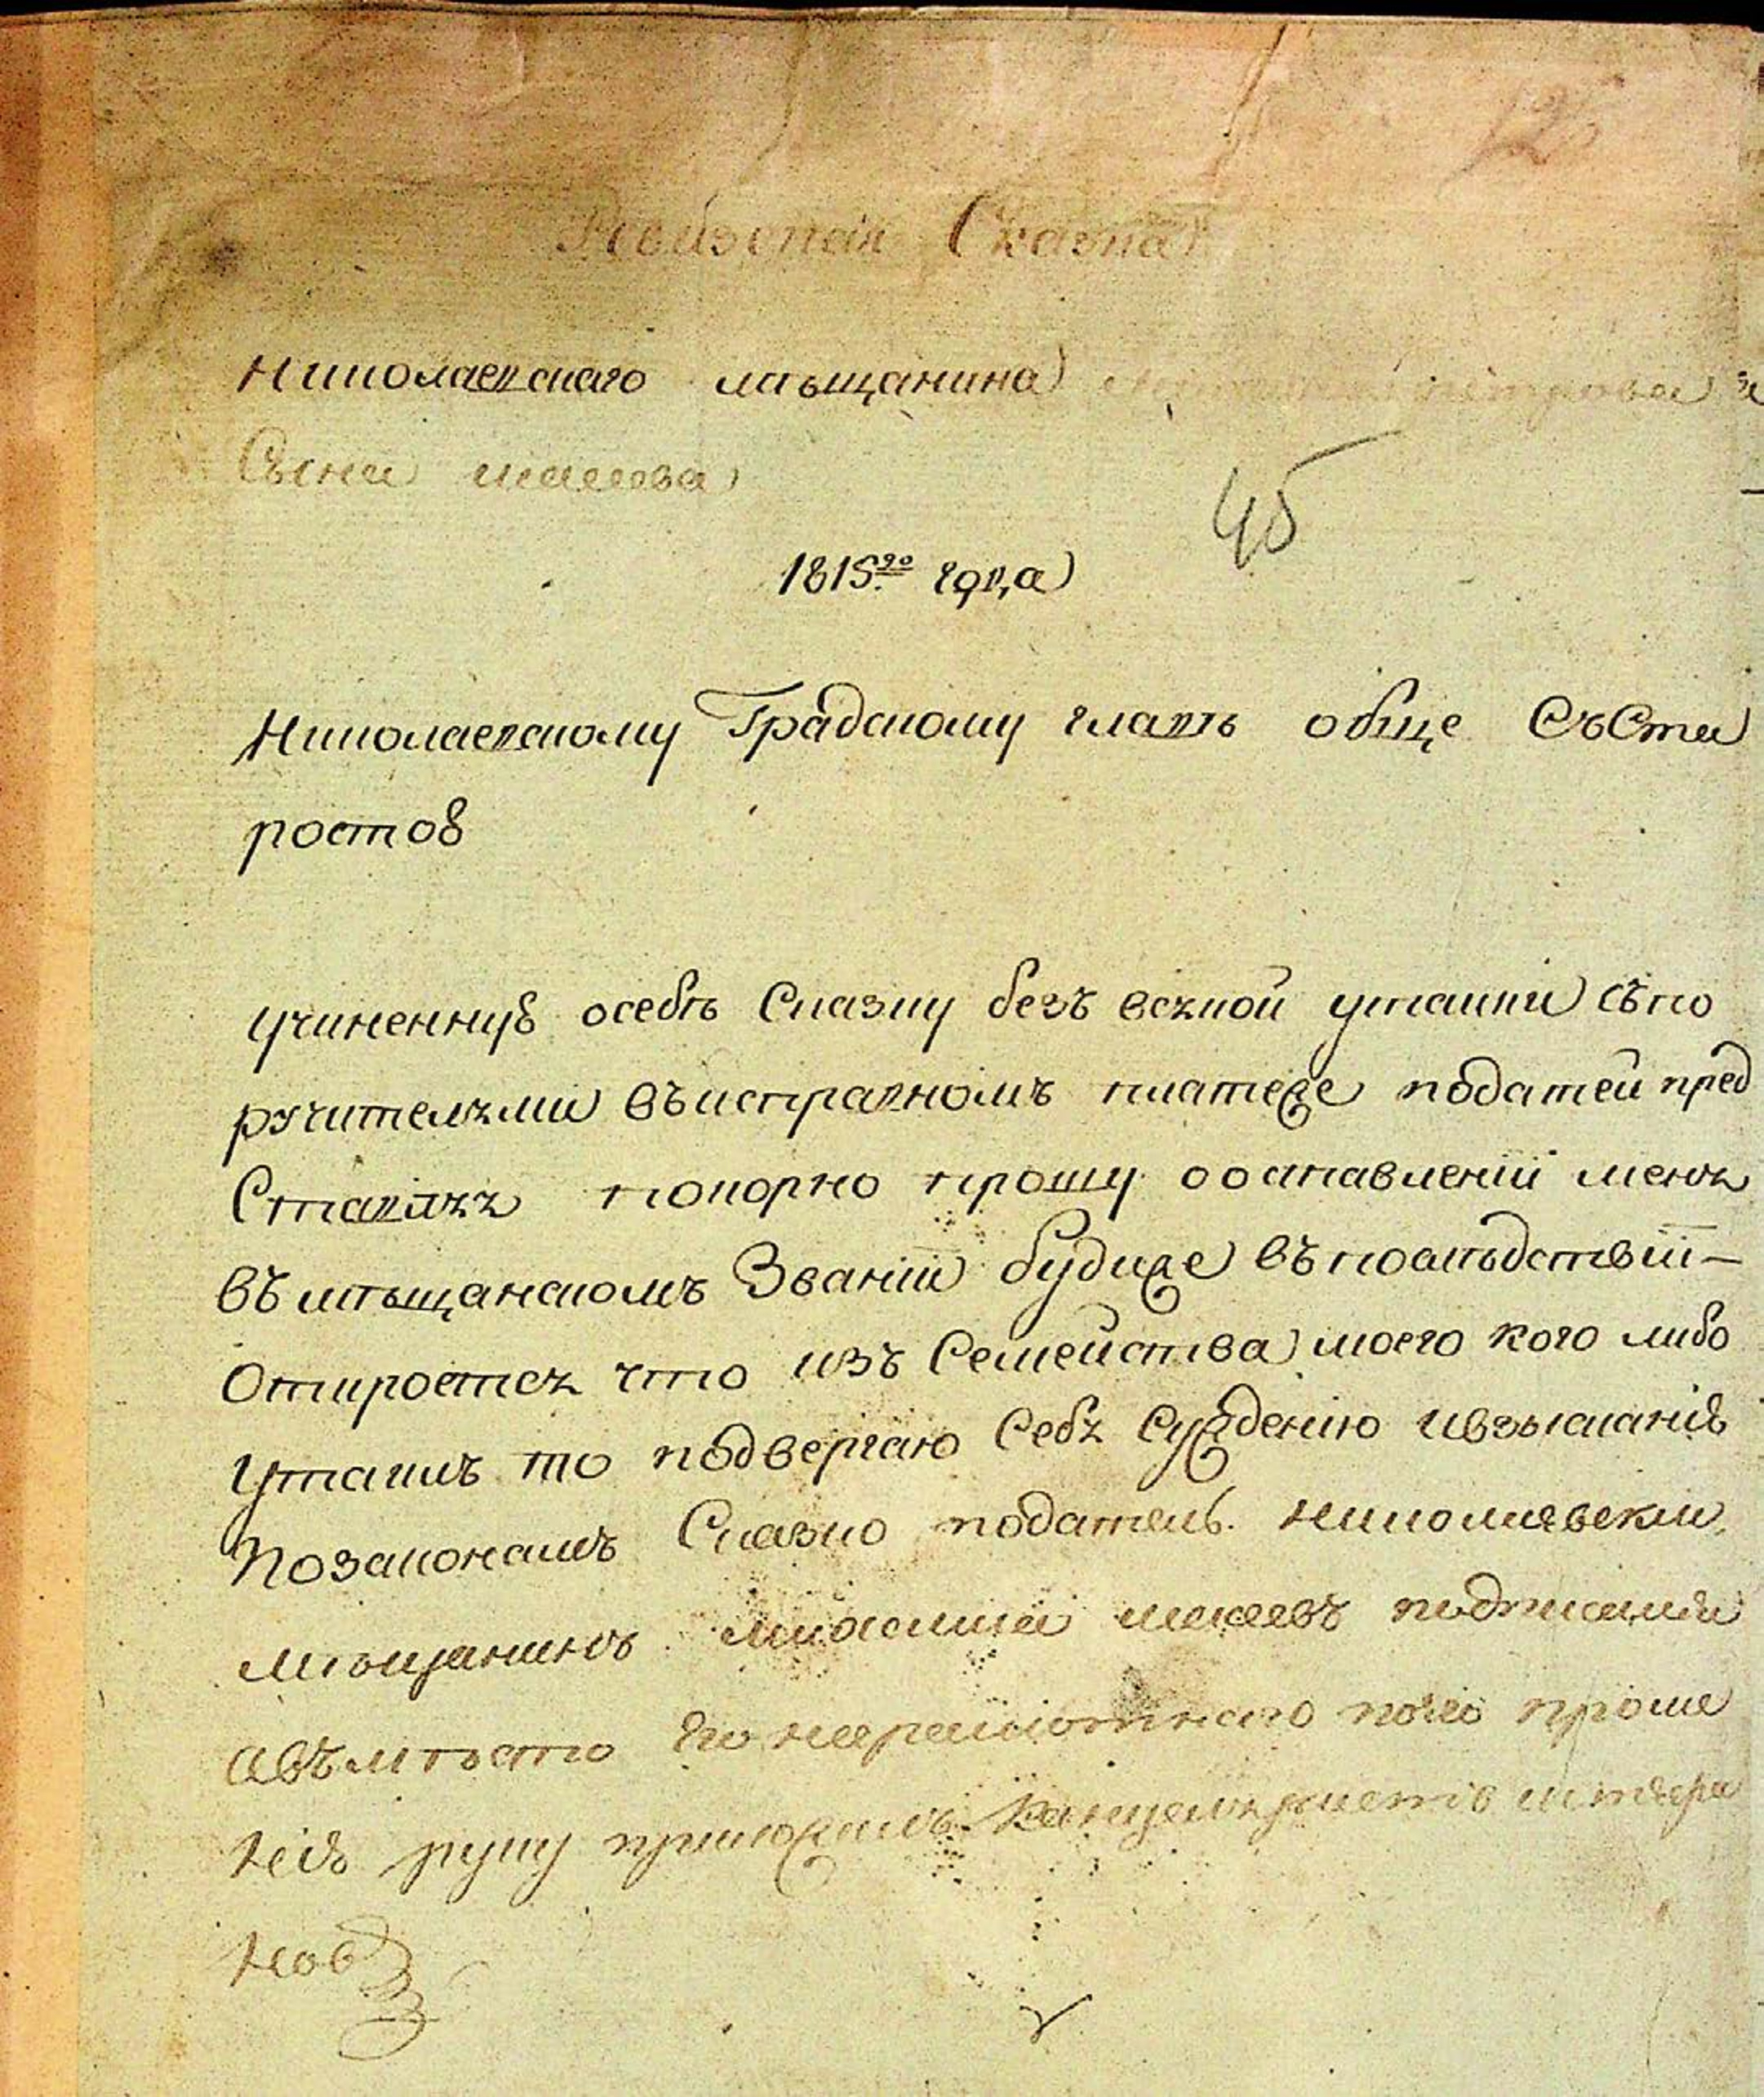 Ревизская Сказка
Николаевскаго мѣщанина петрова
Сына
45
1815го года
Николаевскому Градскому главѣ обще СъСта
ростою
учиненную осебѣ Сказку безъ всякой утайки съпо
ручителями въисправномъ платеже податей пред
Ставляя покорно прошу ооставленіи меня
въмѣщанскомъ Званіи будиже въпослѣдствіи —
Откроется что изъ Семейства моего кого либо
Утаилъ то подвергаю Себя Сужденію ивзысканію
Позаконамъ Сказко податель Николаевски
мѣщанинъ
авъмѣсто Его неграмотнаго поего проше
нію руку приложилъ Канцеляристъ
нов